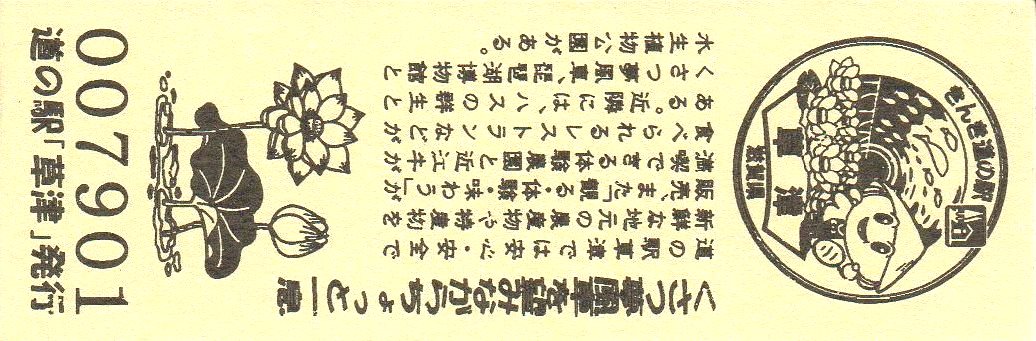 きんき道の駅
草津
滋賀県
くさつ夢風車を望みながらちょっと一息
道の駅草津では安心・安全で
新鮮な地元の農産物や特産物を
販売、また「観る・体験・味わう」が
満喫できる体験農園と近江牛が
食べられるレストランなどが
ある。近隣には、ハスの群生と
くさつ夢風車、琵琶湖博物館と
水生植物公園がある。
007901
道の駅「草津」発行